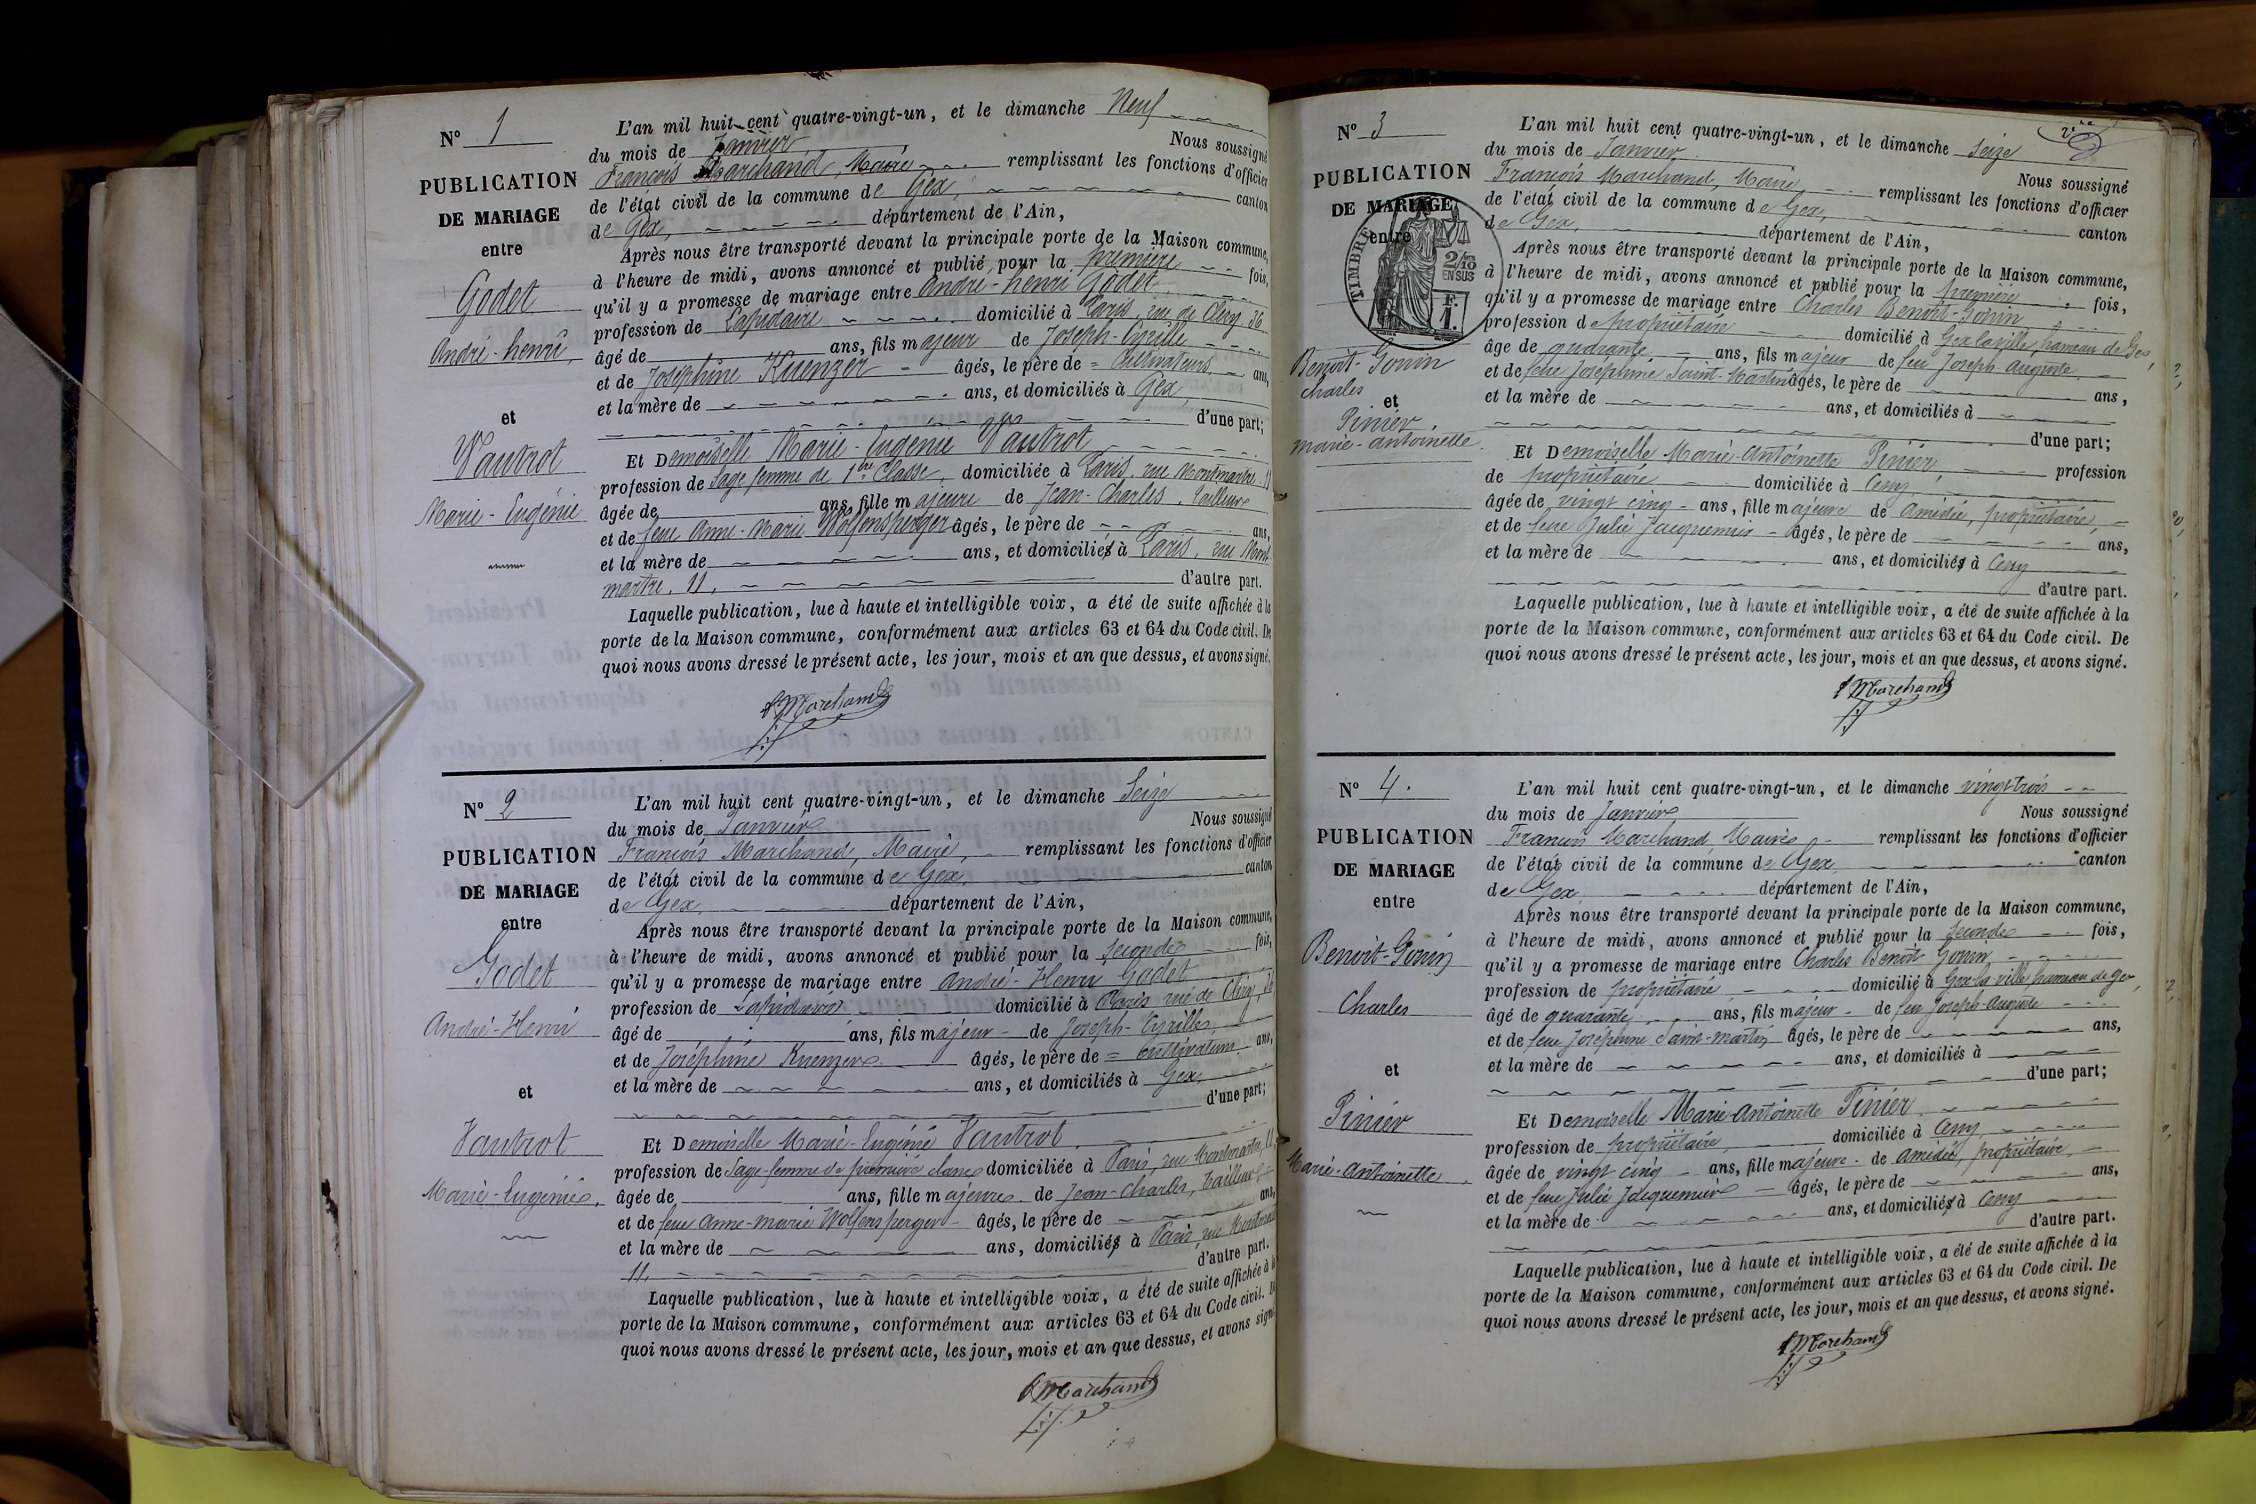 N° 1
PUBLICATION
DE MARIAGE
entre
Godet
André-henri
et
Vautrot
Marie-Eugénie
L'an mil huit cent quatre-vingt-un, et le dimanche Neuf
du mois de Janvier Nous soussigné
François Marchand, Maire remplissant les fonctions d'officier
de l'état civil de la commune de Gex, canton
de Gex, département de l'Ain,
Après nous être transporté devant la principale porte de la Maison commune,
à l'heure de midi, avons annoncé et publié pour la première fois,
qu'il y a promesse de mariage entre André-henri Godet
profession de Lapidaire domicilié à Paris, rue de Cléry, 36
âgé de ans, fils majeur de Joseph-Cyrille
et de Joséphine Kuenzer âgés, le père de = Cultivateurs ans,
et la mère de ans, et domiciliés à Gex,
d'une part;
Et Demoiselle Marie-Eugénie Vautrot
profession de Sage femme de 1ère Classe, domiciliée à Paris, rue Montmartre 11
âgée de ans, fille majeure de Jean-Charles, tailleur
et de feue Anne-Marie Wolfensperger âgés, le père de ans,
et la mère de ans, et domiciliés à Paris, rue Mont-
martre, 11, d'autre part.
Laquelle publication, lue à haute et intelligible voix, a été de suite affichée à la
porte de la Maison commune, conformément aux articles 63 et 64 du Code civil. De
quoi nous avons dressé le présent acte, les jour, mois et an que dessus, et avons signé.
F Marchand
N° 2
PUBLICATION
DE MARIAGE
entre
Godet
André-Henri
et
Vautrot
Marie-Eugénie.
L'an mil huit cent quatre-vingt-un, et le dimanche Seize
du mois de Janvier Nous soussigné
François Marchand, Maire, remplissant les fonctions d'officier
de l'état civil de la commune de Gex, canton
de Gex, département de l'Ain,
Après nous être transporté devant la principale porte de la Maison commune,
à l'heure de midi, avons annoncé et publié pour la seconde fois,
qu'il y a promesse de mariage entre André-Henri Godet
profession de Lapidaire domicilié à Paris rue de Cléry, 36
âgé de ans, fils majeur de Joseph-Cyrille,
et de Joséphine Kuenzer âgés, le père de = Cultivateurs ans,
et la mère de ans, et domiciliés à Gex,
d'une part;
Et Demoiselle Marie-Eugénie Vautrot,
profession de Sage-femme de première classe domiciliée à Paris, rue Montmartre, 11
âgée de ans, fille majeure de Jean-Charles, tailleur
et de feue Anne-Marie Wolfensperger âgés, le père de ans,
et la mère de ans, domiciliés à Paris, rue Montmartre
11, d'autre part.
Laquelle publication, lue à haute et intelligible voix, a été de suite affichée à la
porte de la Maison commune, conformément aux articles 63 et 64 du Code civil. De
quoi nous avons dressé le présent acte, les jour, mois et an que dessus, et avons signé
F Marchand
N° 3
PUBLICATION
DE MARIAGE
entre
TIMBRE
2/10
EN SUS
F.
1.
Benoit-Gonin
Charles
et
Pinier
Marie-Antoinette
L'an mil huit cent quatre-vingt-un, et le dimanche Seize
du mois de Janvier Nous soussigné
François Marchand, Maire, remplissant les fonctions d'officier
de l'état civil de la commune de Gex, canton
de Gex, département de l'Ain,
Après nous être transporté devant la principale porte de la Maison commune,
à l'heure de midi, avons annoncé et publié pour la première fois,
qu'il y a promesse de mariage entre Charles Benoit-Gonin
profession de propriétaire domicilié à Gex la ville, hameau de Gex,
âgé de quarante ans, fils majeur de feu Joseph-Auguste
et de feue Joséphine Saint-Martin âgés, le père de ans,
et la mère de ans, et domiciliés à
d'une part;
Et Demoiselle Marie-Antoinette Pinier profession
de propriétaire domiciliée à Cessy
âgée de vingt cinq ans, fille majeure de Amédée, propriétaire,
et de feue Julie Jacquemier âgés, le père de ans,
et la mère de ans, et domiciliés à Cessy
d'autre part.
Laquelle publication, lue à haute et intelligible voix, a été de suite affichée à la
porte de la Maison commune, conformément aux articles 63 et 64 du Code civil. De
quoi nous avons dressé le présent acte, les jour, mois et an que dessus, et avons signé.
F Marchand
N° 4.
PUBLICATION
DE MARIAGE
entre
Benoit-Gonin
Charles
et
Pinier
Marie-Antoinette
L'an mil huit cent quatre-vingt-un, et le dimanche vingt trois
du mois de Janvier Nous soussigné
François Marchand, Maire remplissant les fonctions d'officier
de l'état civil de la commune de Gex, canton
de Gex, département de l'Ain,
Après nous être transporté devant la principale porte de la Maison commune,
à l'heure de midi, avons annoncé et publié pour la seconde fois,
qu'il y a promesse de mariage entre Charles Benoit Gonin
profession de propriétaire domicilié à Gex la ville hameau de Gex,
âgé de quarante ans, fils majeur de feu Joseph-Auguste
et de feue Joséphine Saint-Martin âgés, le père de ans,
et la mère de ans, et domiciliés à
d'une part;
Et Demoiselle Marie-Antoinette Pinier
profession de propriétaire, domiciliée à Cessy
âgée de vingt cinq ans, fille majeure de Amédée, propriétaire,
et de feue Julie Jacquemier âgés, le père de ans,
et la mère de ans, et domiciliés à Cessy
d'autre part.
Laquelle publication, lue à haute et intelligible voix, a été de suite affichée à la
porte de la Maison commune, conformément aux articles 63 et 64 du Code civil. De
quoi nous avons dressé le présent acte, les jour, mois et an que dessus, et avons signé.
F Marchand